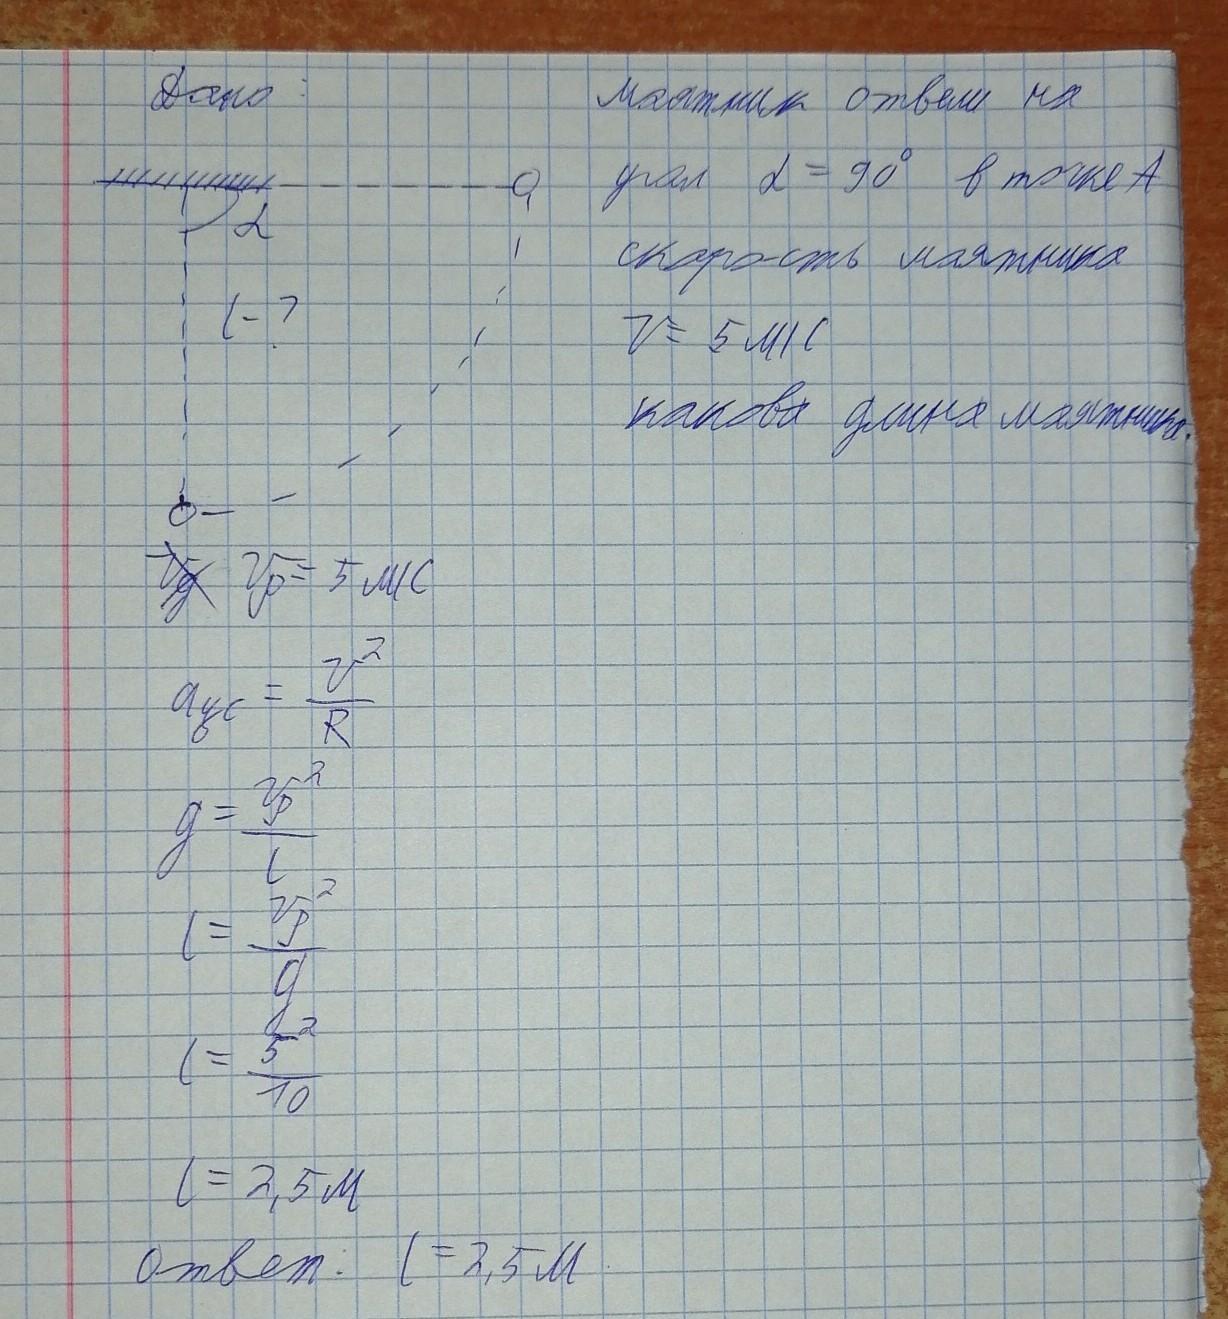 Дано:
маятник отвели на
угол α = 90° в точке A
α
скорость маятника
l - ?
V = 5 м/с
какова длина маятника.
Vр = 5 м/с
aцс = v² / R
g = Vр² / l
l = Vр² / g
l = 5² / 10
l = 2,5 м
ответ: l = 2,5 м